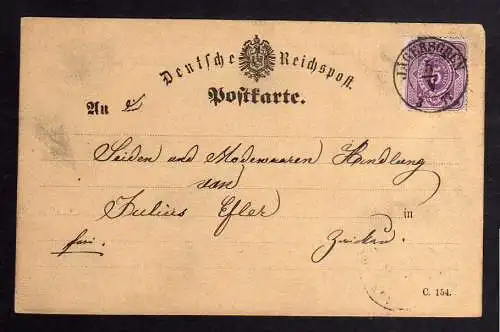 Deutsche Reichspost.
Postkarte.
JÄGERSGRÜN
5
An
Seiden und Modewaaren Handlung
von
Julius Esler
in
frei.
Zwickau.
C. 154.